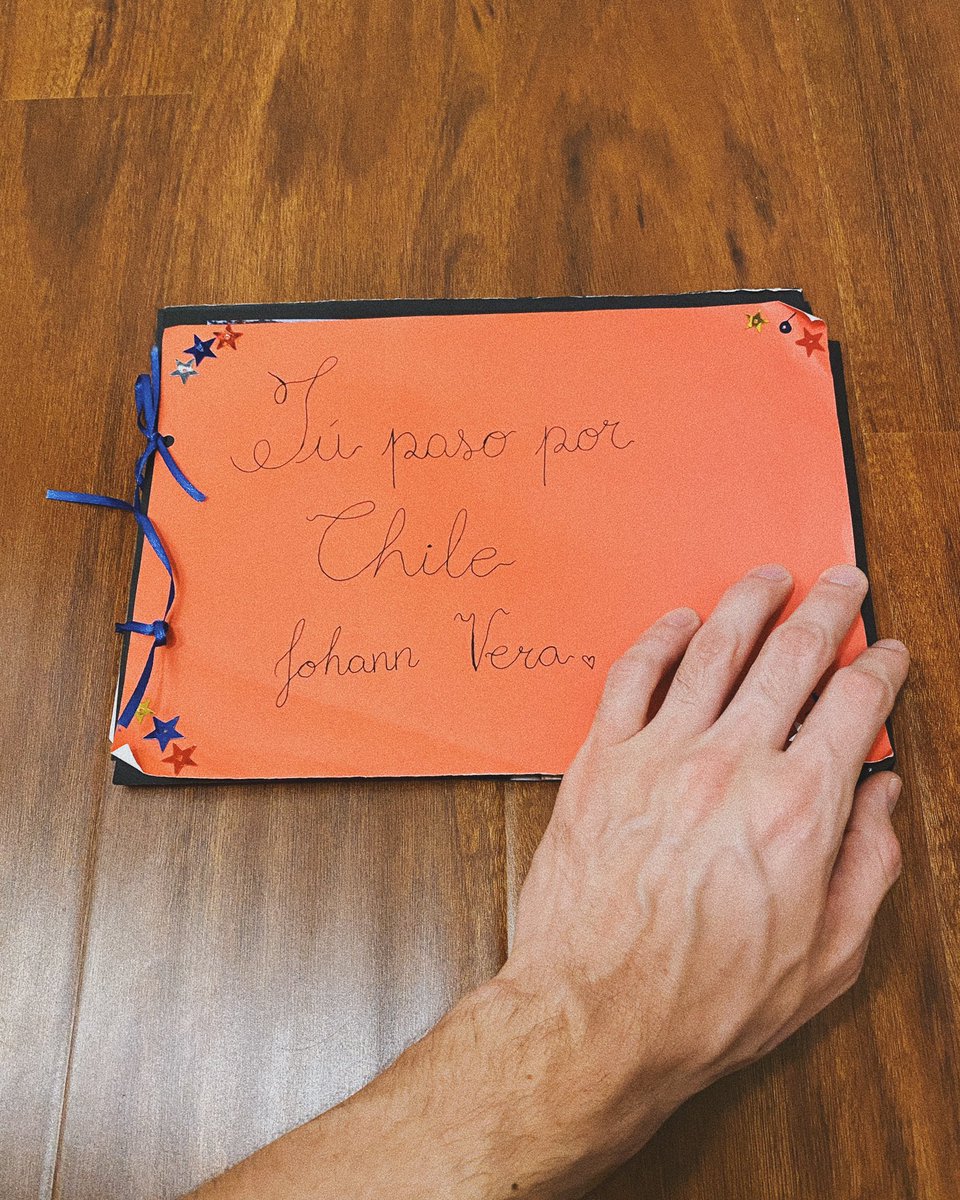 Tú paso por
Chile
Johann Vera